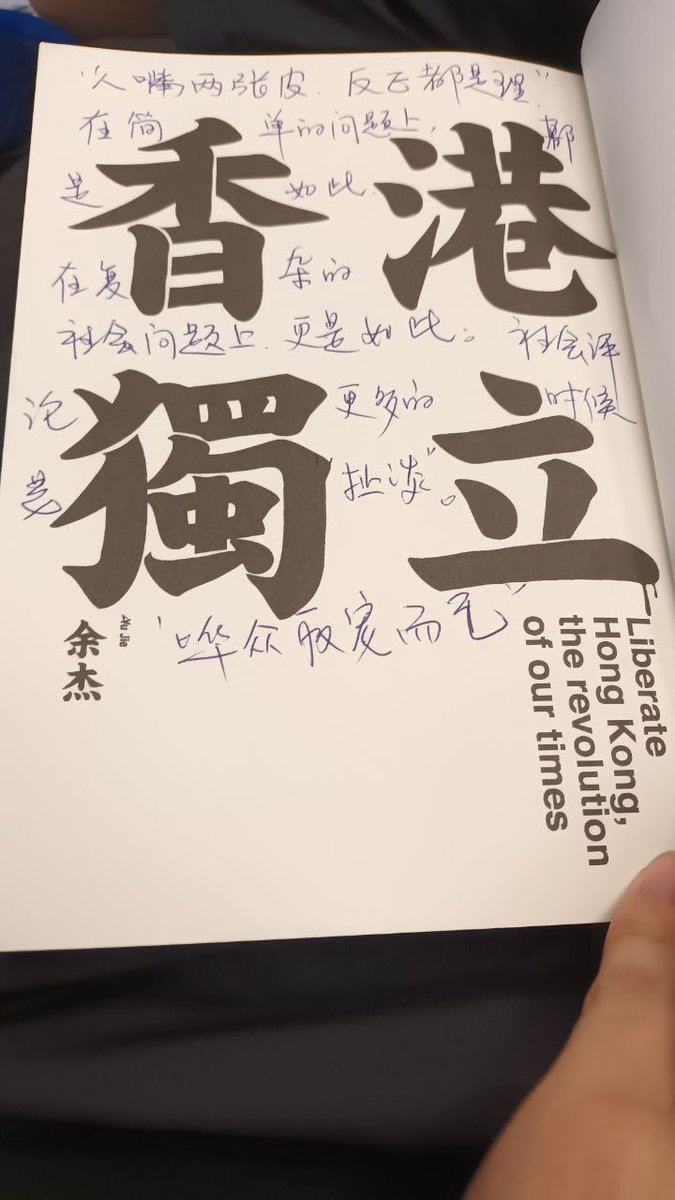 "人嘴两张皮.反正都是理"
在简单的问题上,都
是如此.
香港
在复杂的
社会问题上.更是如此。社会评
论更多的时候
是"扯淡"。
獨立
"哗众取宠而已"
余杰
Yu Jie
Liberate
Hong Kong,
the revolution
of our times